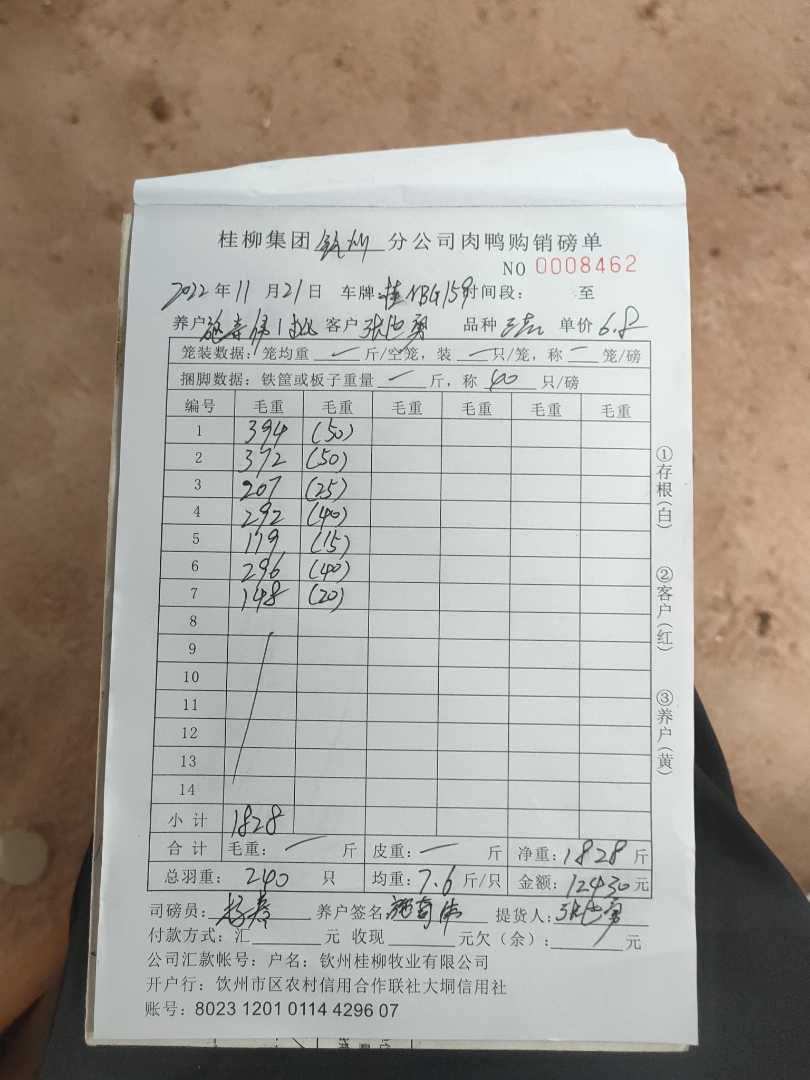 桂柳集团 钦州 分公司肉鸭购销磅单
NO 0008462
2022 年 11 月 21 日 车牌: 桂NBG159 时间段: 至
养户 客户 张 勇 品种 单价 6.8
笼装数据: 笼均重 一 斤/空笼, 装 一 只/笼, 称 一 笼/磅
捆脚数据: 铁筐或板子重量 一 斤, 称 40 只/磅
编号 毛重 毛重 毛重 毛重 毛重 毛重
1 394 (50)
2 372 (50)
3 207 (25)
4 292 (40)
5 119 (15)
6 296 (40)
7 148 (20)
8
9
10
11
12
13
14
小计 1828
合计 毛重: 一 斤 皮重: 一 斤 净重: 1828 斤
总羽重: 240 只 均重: 7.6 斤/只 金额: 12430 元
司磅员: 杨 养户签名: 提货人: 张 勇
付款方式: 汇 元 收现 元欠(余): 元
公司汇款帐号: 户名: 钦州桂柳牧业有限公司
开户行: 饮州市区农村信用合作联社大垌信用社
账号: 8023 1201 0114 4296 07
①存根(白) ②客户(红) ③养户(黄)